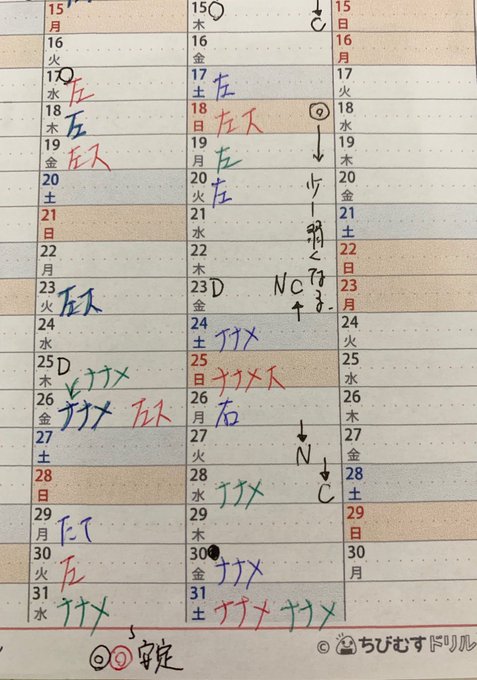 15 月
16 火
17 水 左
18 木 左
19 金 左ス
20 土
21 日
22 月
23 火 左
24 水
25 木 D ナナメ
26 金 ナナメ 左ス
27 土
28 日
29 月 たて
30 火 左
31 水 ナナメ
15 木 C
16 金
17 土 左
18 日 左
19 月 左
20 火 左
21 水
22 木
23 金 D NC
24 土 ナナメ
25 日 ナナメ
26 月 右
27 火 N
28 水 ナナメ C
29 木
30 金 ナナメ
31 土 ナナメ ナナメ
◎
↓
少し弱くなる.
15 日
16 月
17 火
18 水
19 木
20 金
21 土
22 日
23 月
24 火
25 水
26 木
27 金
28 土
29 日
30 月
◎◎ 安定
© ちびむすドリル